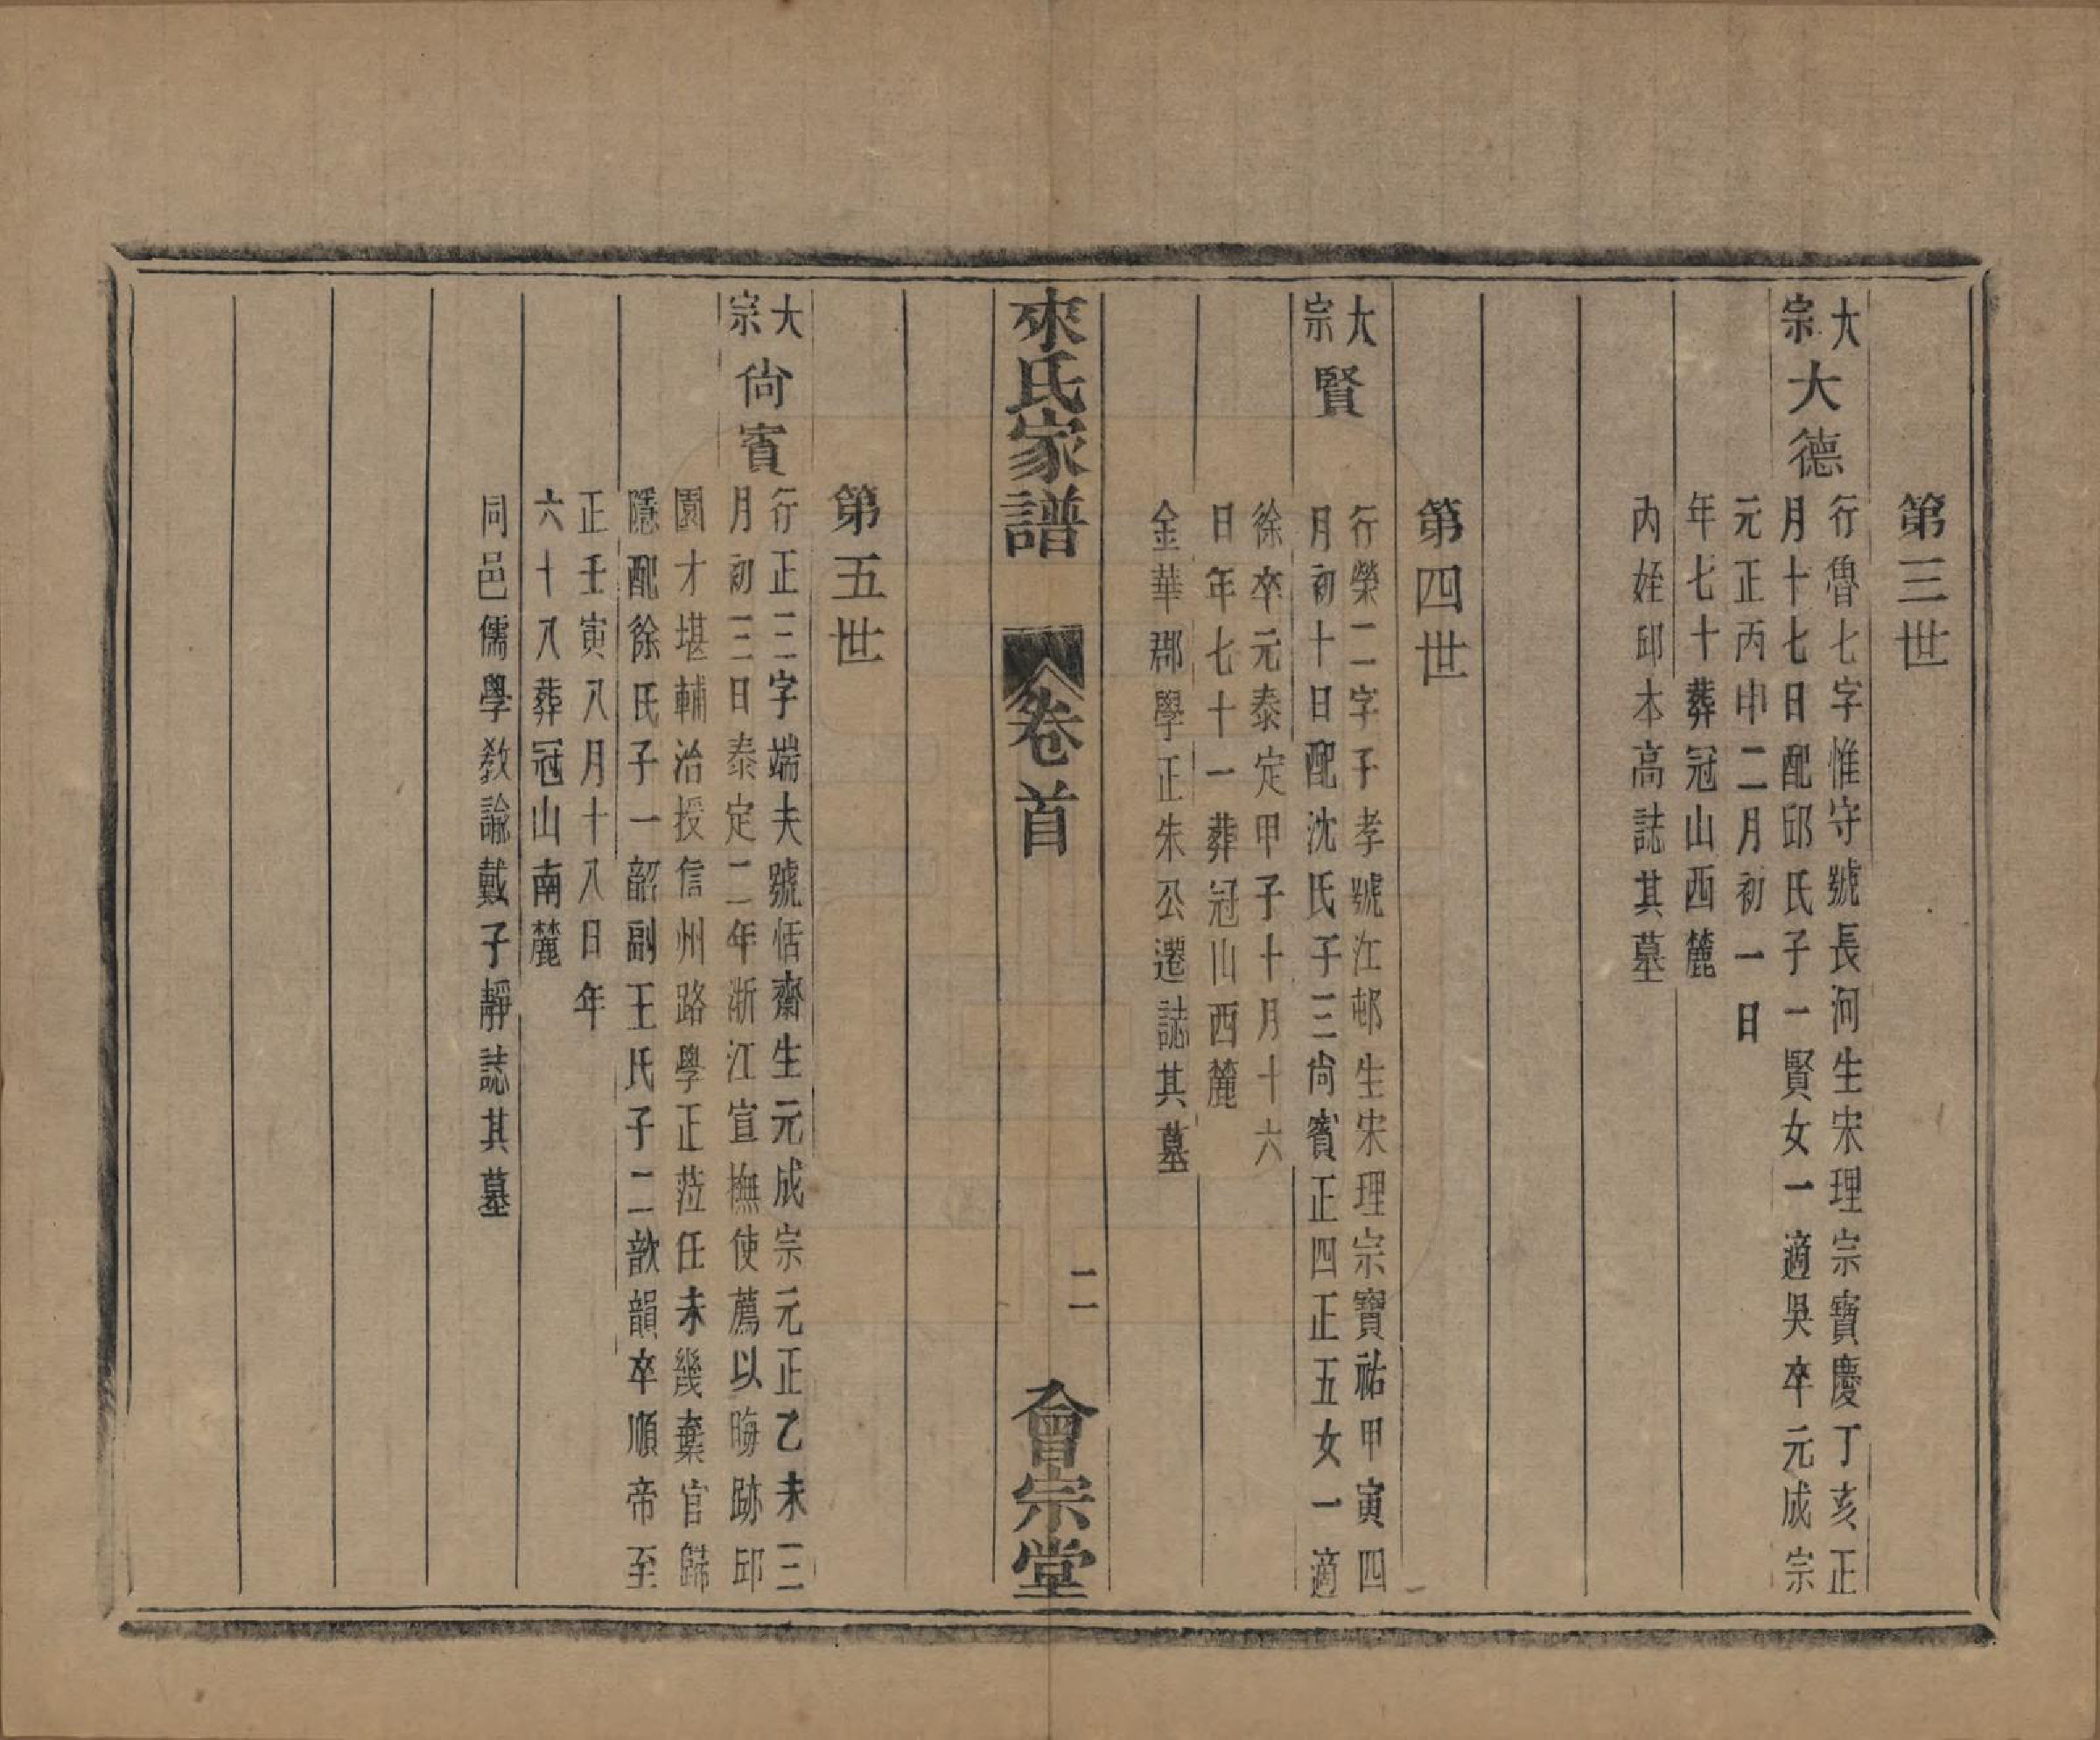 第三世
大宗 大德
行魯七字惟守號長河生宋理宗寶慶丁亥正
月十七日配邱氏子一賢女一適吳卒元成宗
元正丙申二月初一日
年七十葬冠山西麓
內姪邱本高誌其墓
第四世
大宗 賢
行榮二字子孝號江邨生宋理宗寶祐甲寅四
月初十日配沈氏子三尚賓正四正五女一適
徐卒元泰定甲子十月十六
日年七十一葬冠山西麓
金華郡學正朱公遷誌其墓
來氏家譜 卷首 二 會宗堂
第五世
大宗 尚賓
行正三字端夫號恬齋生元成宗元正乙未三
月初三日泰定二年浙江宣撫使薦以晦跡邱
園才堪輔治授信州路學正蒞任未幾棄官歸
隱配徐氏子一韶副王氏子二歆韻卒順帝至
正壬寅八月十八日年
六十八葬冠山南麓
同邑儒學教諭戴子靜誌其墓